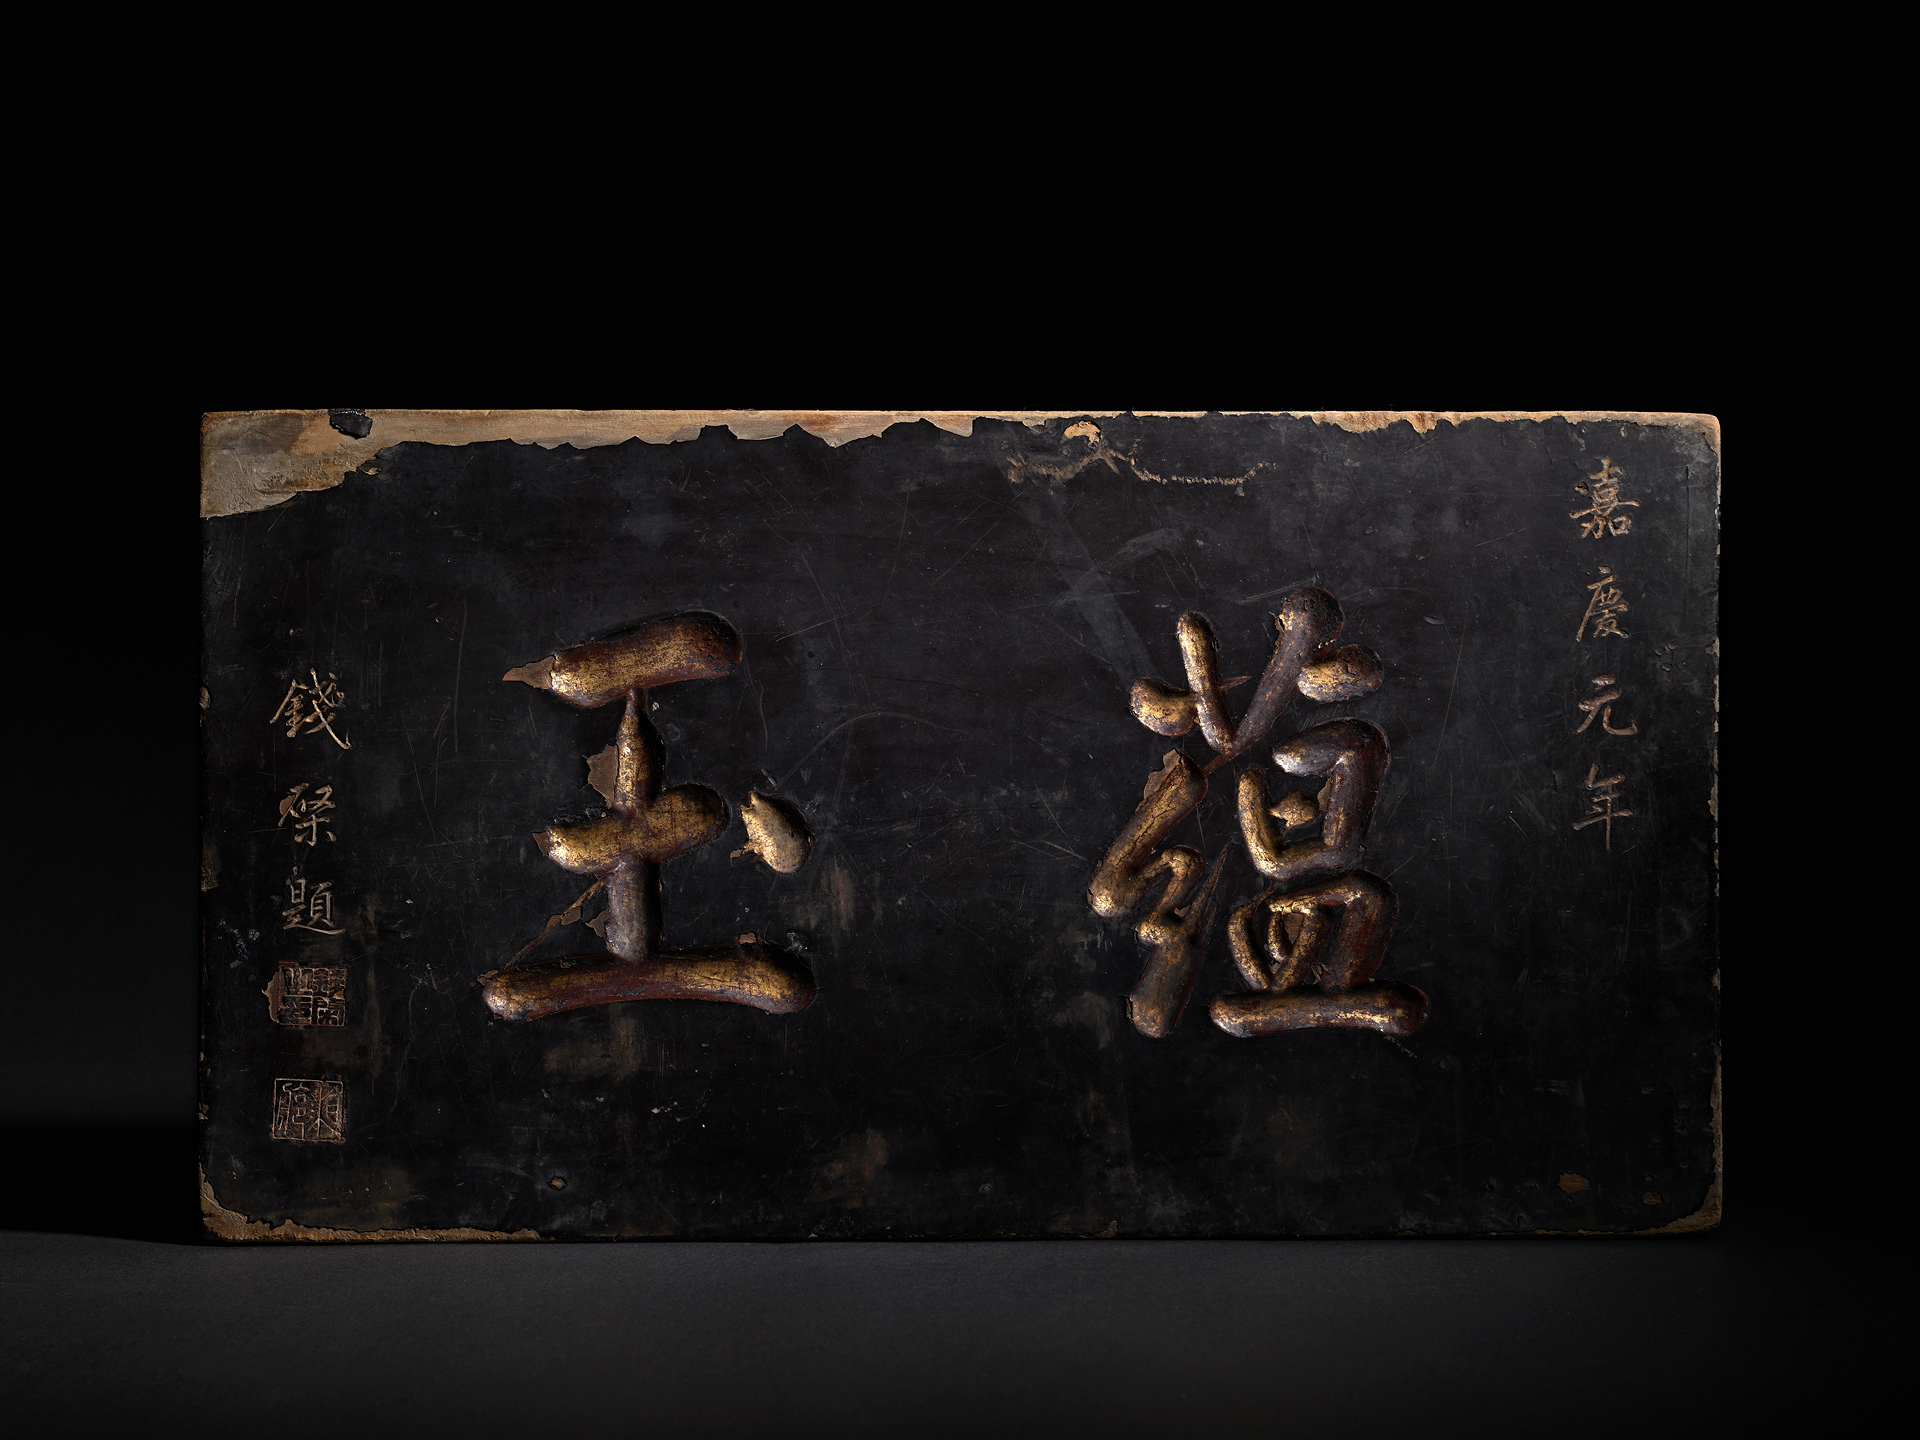 嘉慶元年
蘊玉
錢棨題